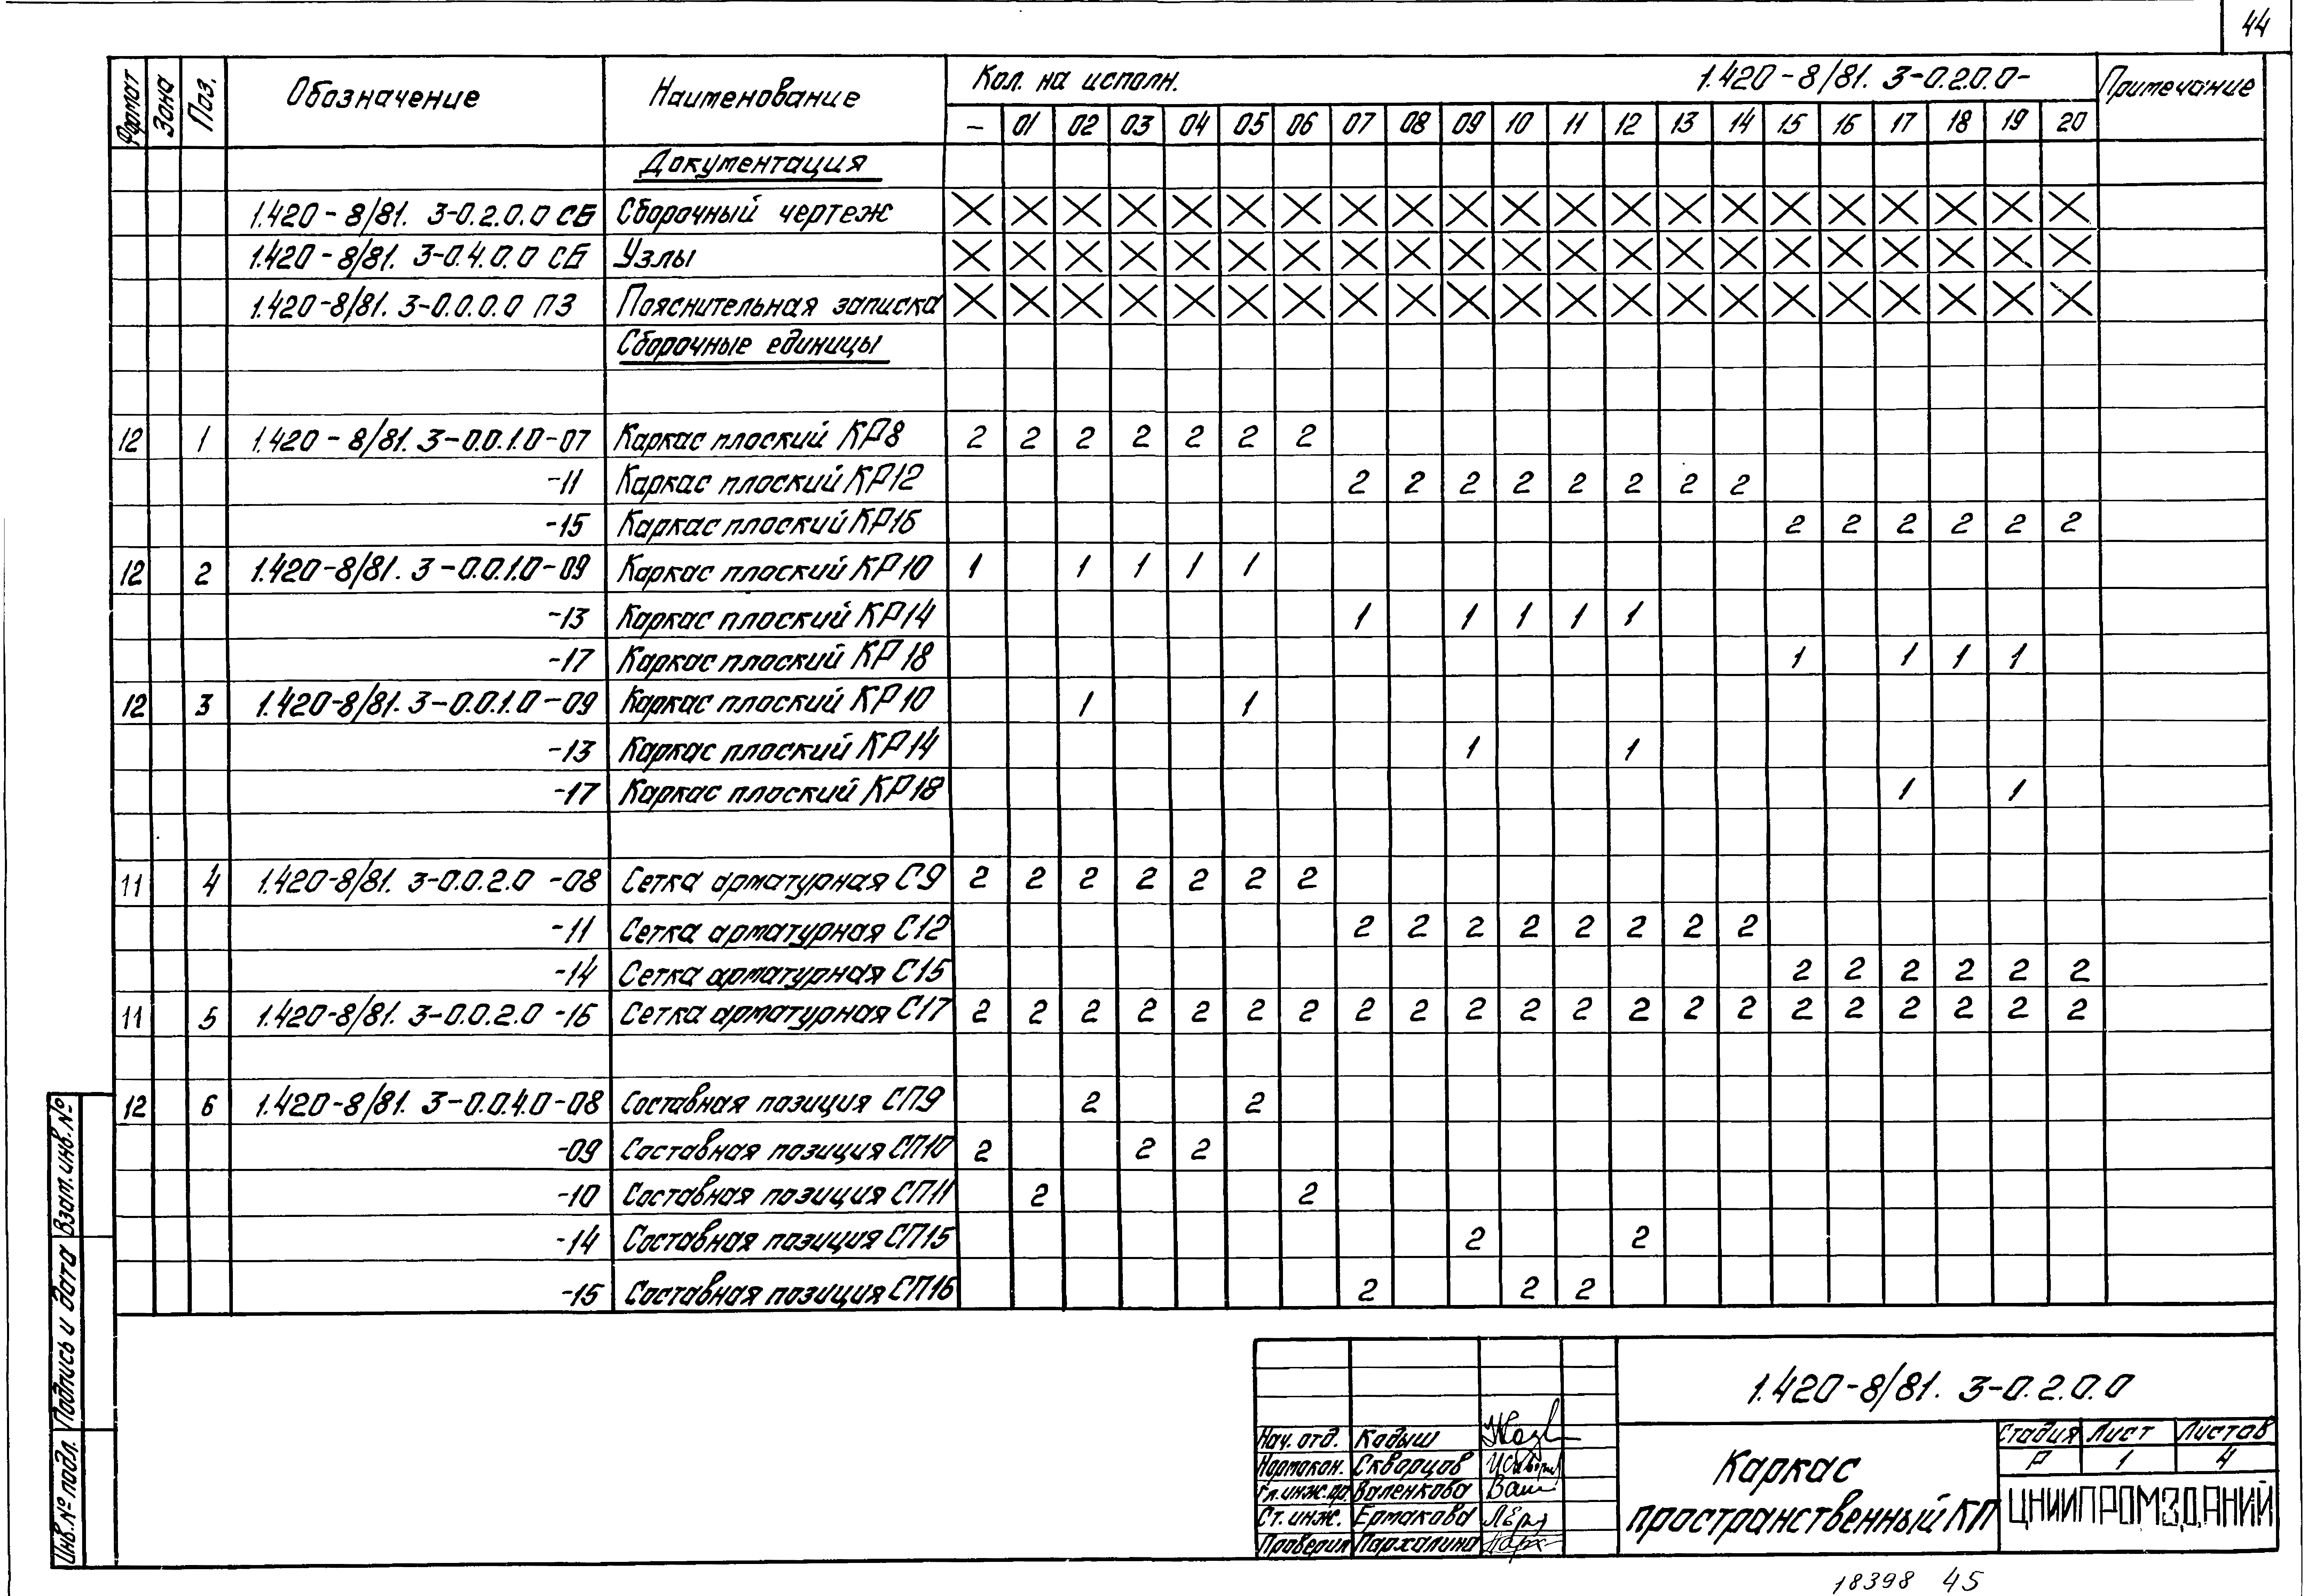 44
Формат Зона Поз. Обозначение Наименование Кол. на исполн. 1.420-8/81. 3-0.2.0.0- Примечание
– 01 02 03 04 05 06 07 08 09 10 11 12 13 14 15 16 17 18 19 20
Документация
1.420-8/81. 3-0.2.0.0 СБ Сборочный чертеж X X X X X X X X X X X X X X X X X X X X X
1.420-8/81. 3-0.4.0.0 СБ Узлы X X X X X X X X X X X X X X X X X X X X X
1.420-8/81. 3-0.0.0.0 ПЗ Пояснительная записка X X X X X X X X X X X X X X X X X X X X X
Сборочные единицы
12 1 1.420-8/81. 3-0.0.1.0-07 Каркас плоский КР8 2 2 2 2 2 2 2
-11 Каркас плоский КР12 2 2 2 2 2 2 2 2
-15 Каркас плоский КР16 2 2 2 2 2 2
12 2 1.420-8/81. 3-0.0.1.0-09 Каркас плоский КР10 1 1 1 1 1
-13 Каркас плоский КР14 1 1 1 1 1
-17 Каркас плоский КР18 1 1 1 1
12 3 1.420-8/81. 3-0.0.1.0-09 Каркас плоский КР10 1 1
-13 Каркас плоский КР14 1 1
-17 Каркас плоский КР18 1 1
11 4 1.420-8/81. 3-0.0.2.0-08 Сетка арматурная С9 2 2 2 2 2 2 2
-11 Сетка арматурная С12 2 2 2 2 2 2 2 2
-14 Сетка арматурная С15 2 2 2 2 2 2
11 5 1.420-8/81. 3-0.0.2.0-16 Сетка арматурная С17 2 2 2 2 2 2 2 2 2 2 2 2 2 2 2 2 2 2 2 2 2
12 6 1.420-8/81. 3-0.0.4.0-08 Составная позиция СП9 2 2
-09 Составная позиция СП10 2 2 2
-10 Составная позиция СП11 2 2
-14 Составная позиция СП15 2 2
-15 Составная позиция СП16 2 2 2
Инв.№ подл. Подпись и дата Взам.инв.№
1.420-8/81. 3-0.2.0.0
Нач. отд. Кодыш
Нормокон. Скворцов
Гл.инж.пр. Валенкова
Ст. инж. Ермакова
Проверил Пархалина
Каркас
пространственный КП
Стадия Лист Листов
Р 1 4
ЦНИИПРОМЗДАНИЙ
18398 45